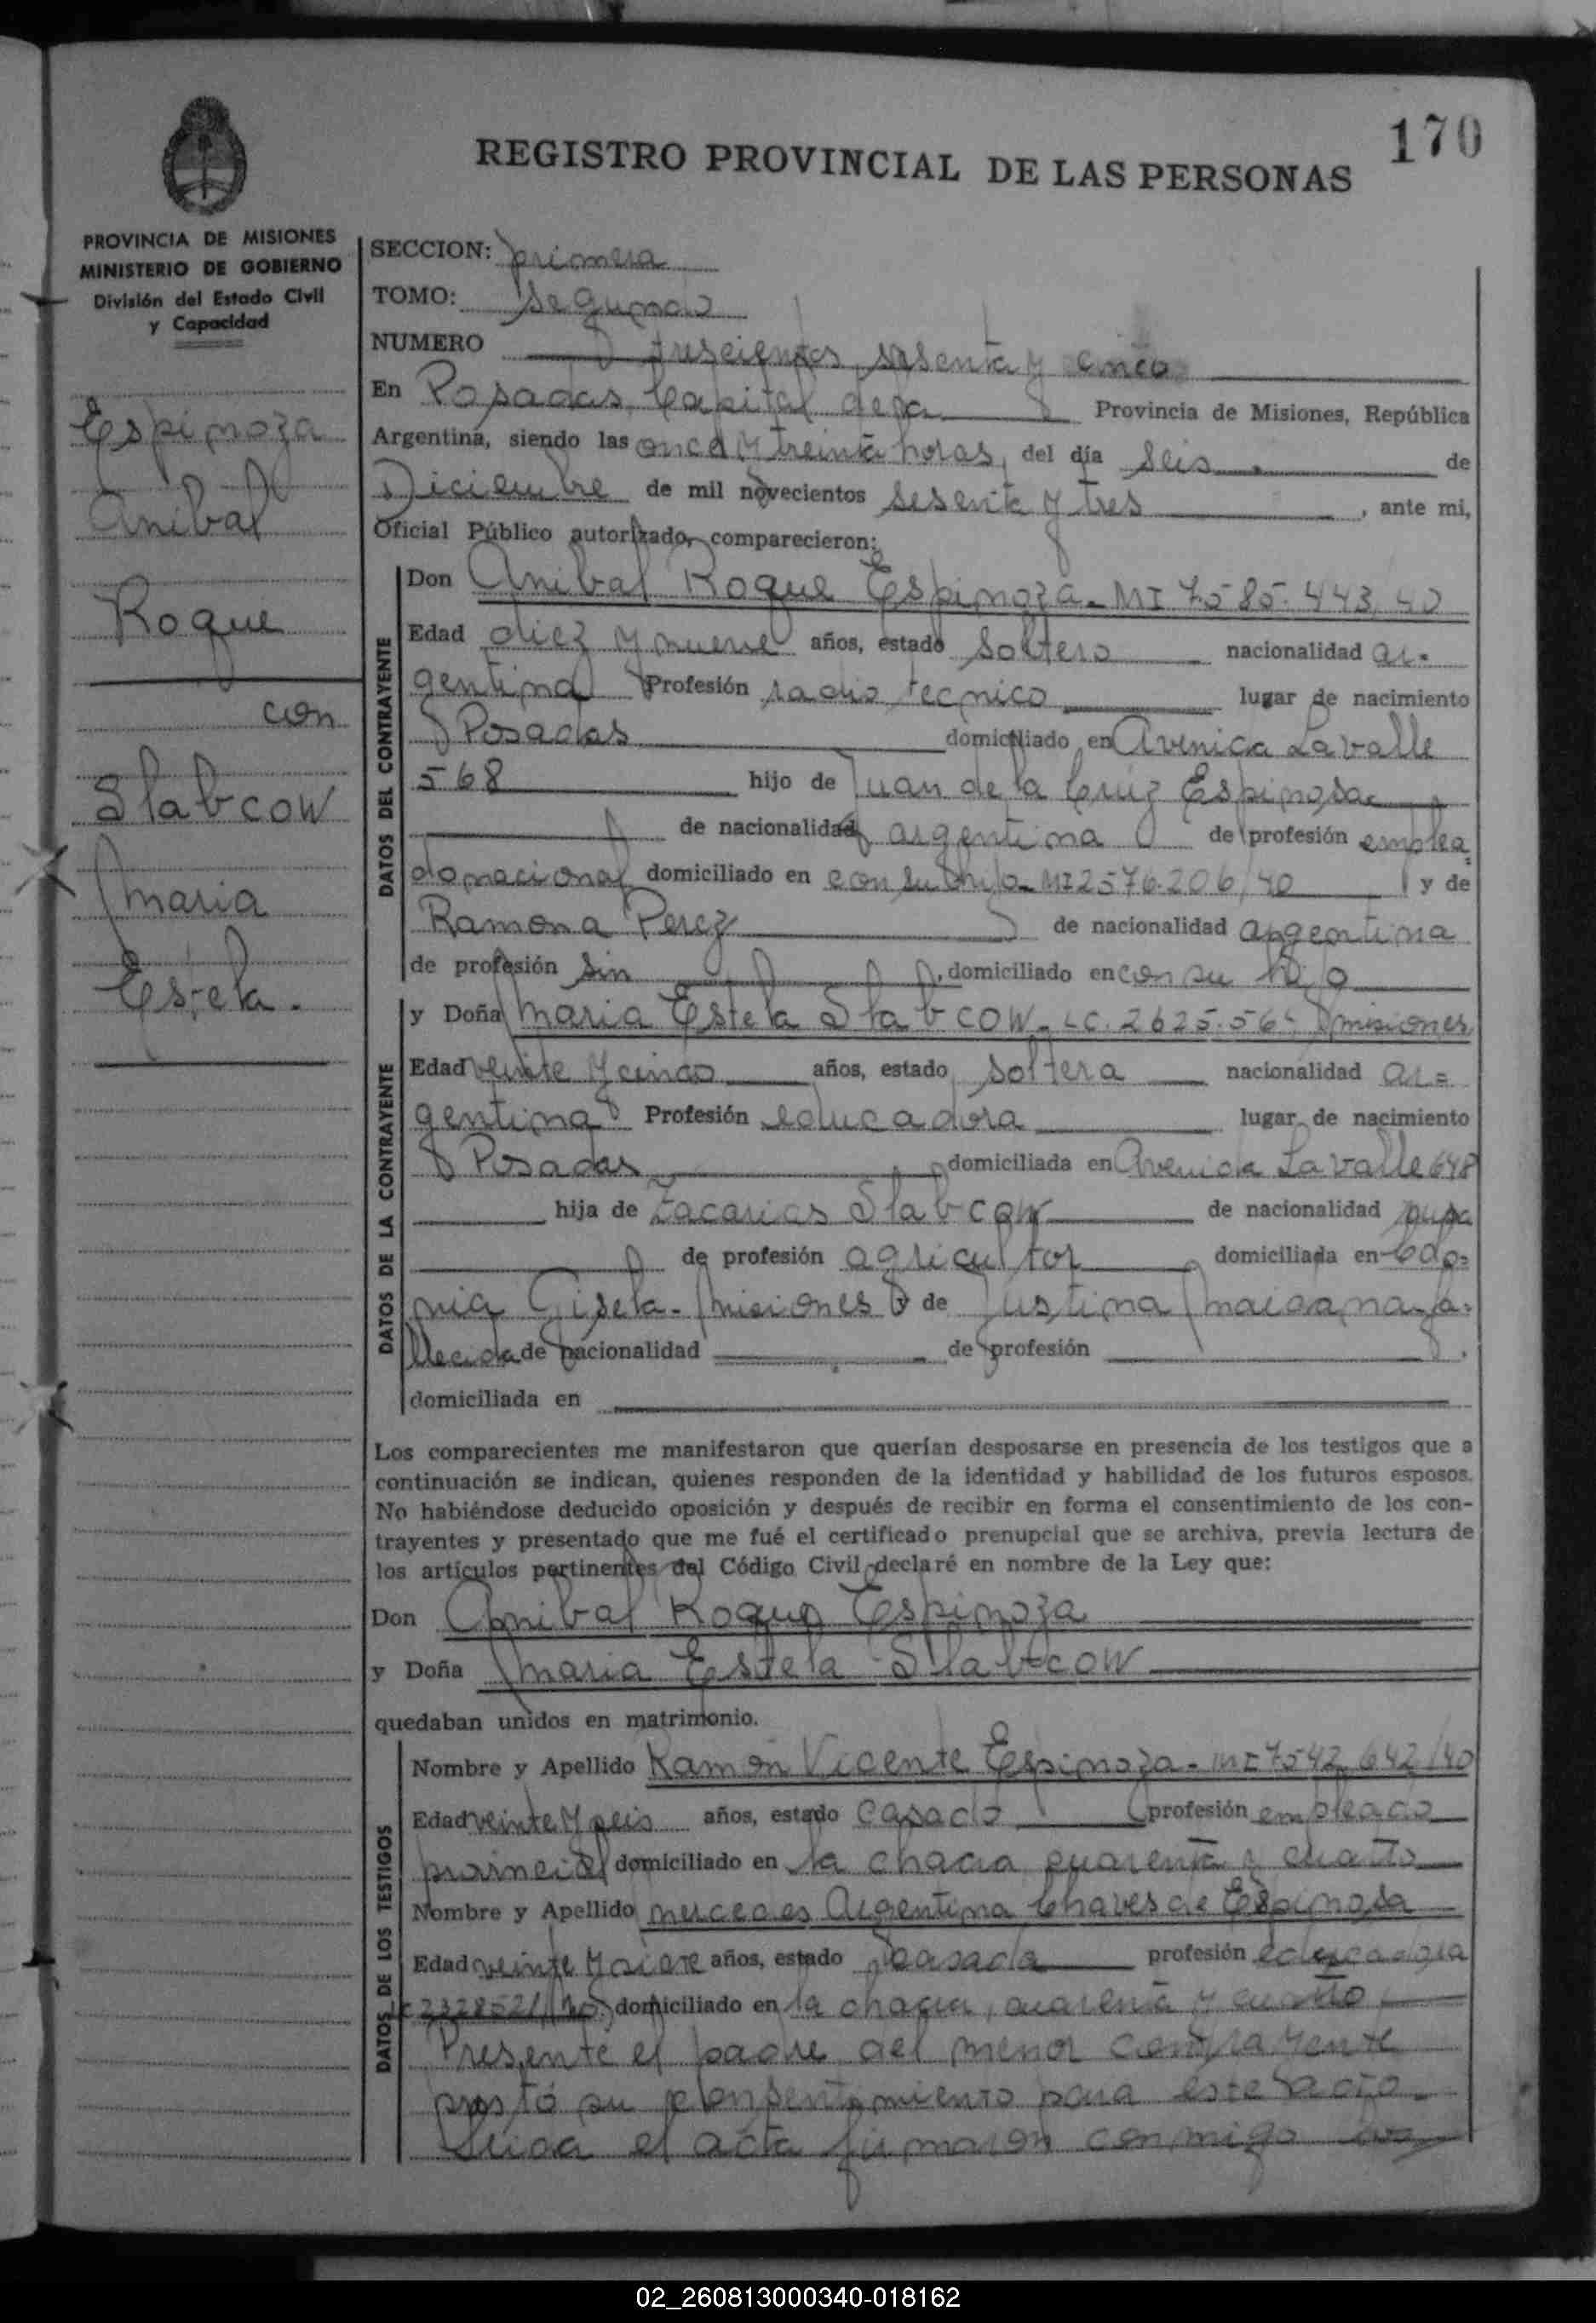 170
REGISTRO PROVINCIAL DE LAS PERSONAS
PROVINCIA DE MISIONES
MINISTERIO DE GOBIERNO
División del Estado Civil
y Capacidad
Espinoza
Anibal
Roque
con
Slabcow
Maria
Estela.
SECCION: primera
TOMO: segundo
NUMERO trescientos sesenta y cinco
En Posadas, Capital de la Provincia de Misiones, República
Argentina, siendo las once y treinta horas, del día seis de
Diciembre de mil novecientos sesenta y tres, ante mi,
Oficial Público autorizado, comparecieron:
DATOS DEL CONTRAYENTE
Don Anibal Roque Espinoza - MI 7.585.443/40
Edad diez y nueve años, estado soltero nacionalidad ar-
gentina Profesión radio tecnico lugar de nacimiento
Posadas domiciliado en Avenida Lavalle
568 hijo de Juan de la Cruz Espinosa
de nacionalidad argentina de profesión emplea
do nacional domiciliado en con su hijo - MI 2576.206/40 y de
Ramona Perez de nacionalidad argentina
de profesión sin, domiciliado en con su hijo
DATOS DE LA CONTRAYENTE
y Doña Maria Estela Slabcow - LC. 2625.56 Misiones
Edad veinte y cinco años, estado soltera nacionalidad ar=
gentina Profesión educadora lugar de nacimiento
Posadas domiciliada en Avenida Lavalle 648
hija de Zacarias Slabcow de nacionalidad rusa
de profesión agricultor domiciliada en Colo=
nia Gisela - Misiones y de Justina Maidana - fa=
llecida de nacionalidad de profesión
domiciliada en
Los comparecientes me manifestaron que querían desposarse en presencia de los testigos que a
continuación se indican, quienes responden de la identidad y habilidad de los futuros esposos.
No habiéndose deducido oposición y después de recibir en forma el consentimiento de los con-
trayentes y presentado que me fué el certificado prenupcial que se archiva, previa lectura de
los artículos pertinentes del Código Civil declaré en nombre de la Ley que:
Don Anibal Roque Espinoza
y Doña Maria Estela Slabcow
quedaban unidos en matrimonio.
DATOS DE LOS TESTIGOS
Nombre y Apellido Ramon Vicente Espinoza - MI 7542.642/40
Edad veinte y seis años, estado casado profesión empleado
provincial domiciliado en la chacra cuarenta y cuatro
Nombre y Apellido Mercedes Argentina Chaves de Espinosa
Edad veinte y siete años, estado casada profesión educadora
domiciliado en la chacra, cuarenta y cuatro
Presente el padre del menor contrayente
prestó su consentimiento para este acto.
Leida el acta firmaron conmigo los
02_260813000340-018162